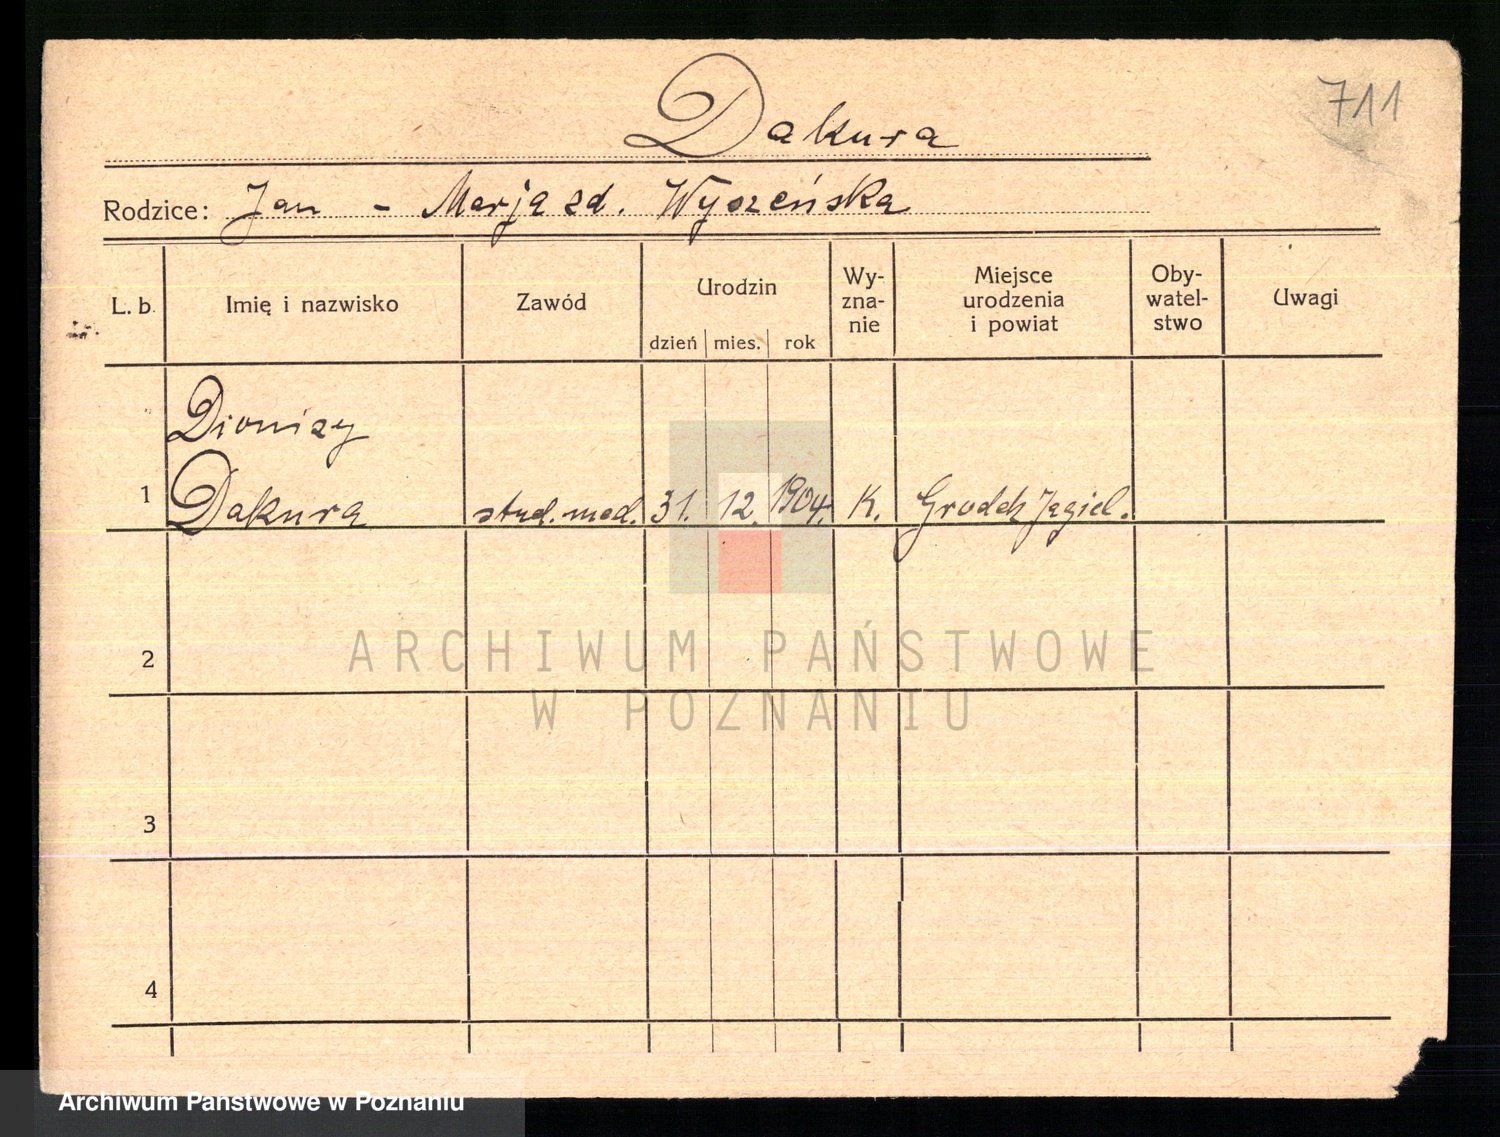 711
Dakura
Rodzice: Jan - Marja zd. Wyszeńska
L. b. Imię i nazwisko Zawód Urodzin Wy-zna-nie Miejsce urodzenia i powiat Oby-watel-stwo Uwagi
dzień mies. rok
Dionizy
1 Dakura stud. med. 31. 12. 1904. K. Grodek Jagiel.
2
ARCHIWUM PAŃSTWOWE
W POZNANIU
3
4
Archiwum Państwowe w Poznaniu